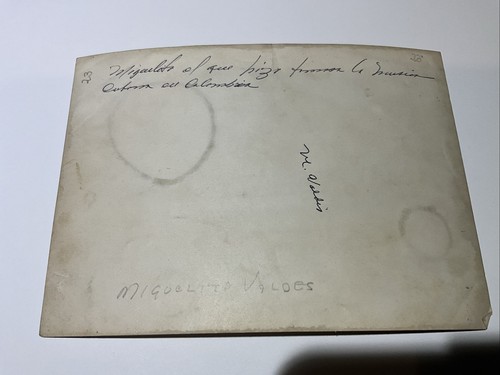 23
Miguelito el que hizo famosa la musica
Cubana en Colombia
M. Valdes
MIGUELITO VALDES